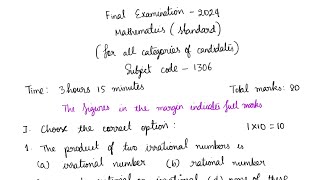 Final Examination - 2024
Mathematics (Standard)
(for all categories of candidates)
Subject code - 1306
Time: 3 hours 15 minutes Total marks: 80
The figures in the margin indicate full marks
I. Choose the correct option: 1×10=10
1. The product of two irrational numbers is
(a) irrational number (b) rational number
(d) none of these